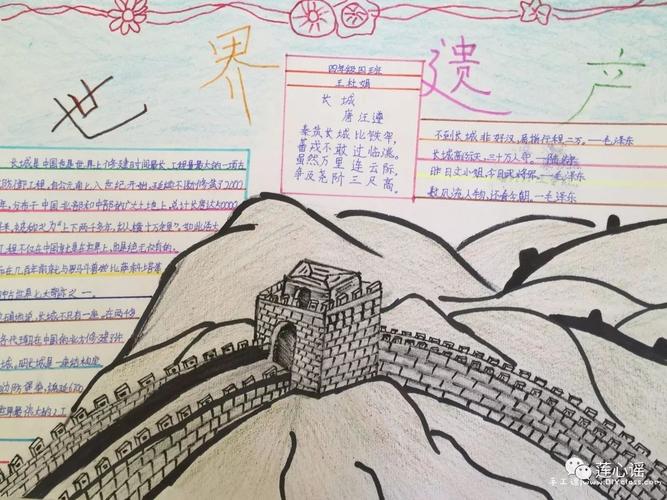 世界遗产
四年级四班
王杜娟
长城
唐汪遵
秦筑长城比铁牢,
蕃戎不敢过临洮。
虽然万里连云际,
争及尧阶三尺高。
不到长城非好汉,屈指行程二万。——毛泽东
长城高际天,三十万人守。——陆游
昨日文小姐,今日武将军。——毛泽东
数风流人物,还看今朝。——毛泽东
长城是中国也是世界上修建时间最长、工程量最大的一项古
防御工程,自公元前七八世纪开始,延续不断修筑了2000
年,分布于中国北部和中部的广大土地上,总计长度达50000
被称之为“上下两千多年,纵横十万余里”。如此浩大
工程不仅在中国就是在世界上,也是绝无仅有的,
在几百年前就与罗马斗兽场比萨斜塔等
中古世界七大奇迹之一。
长城不只有一座,在
各代
城,明长城是
6700
莲心谣
手工谣|www.DIYclass.com